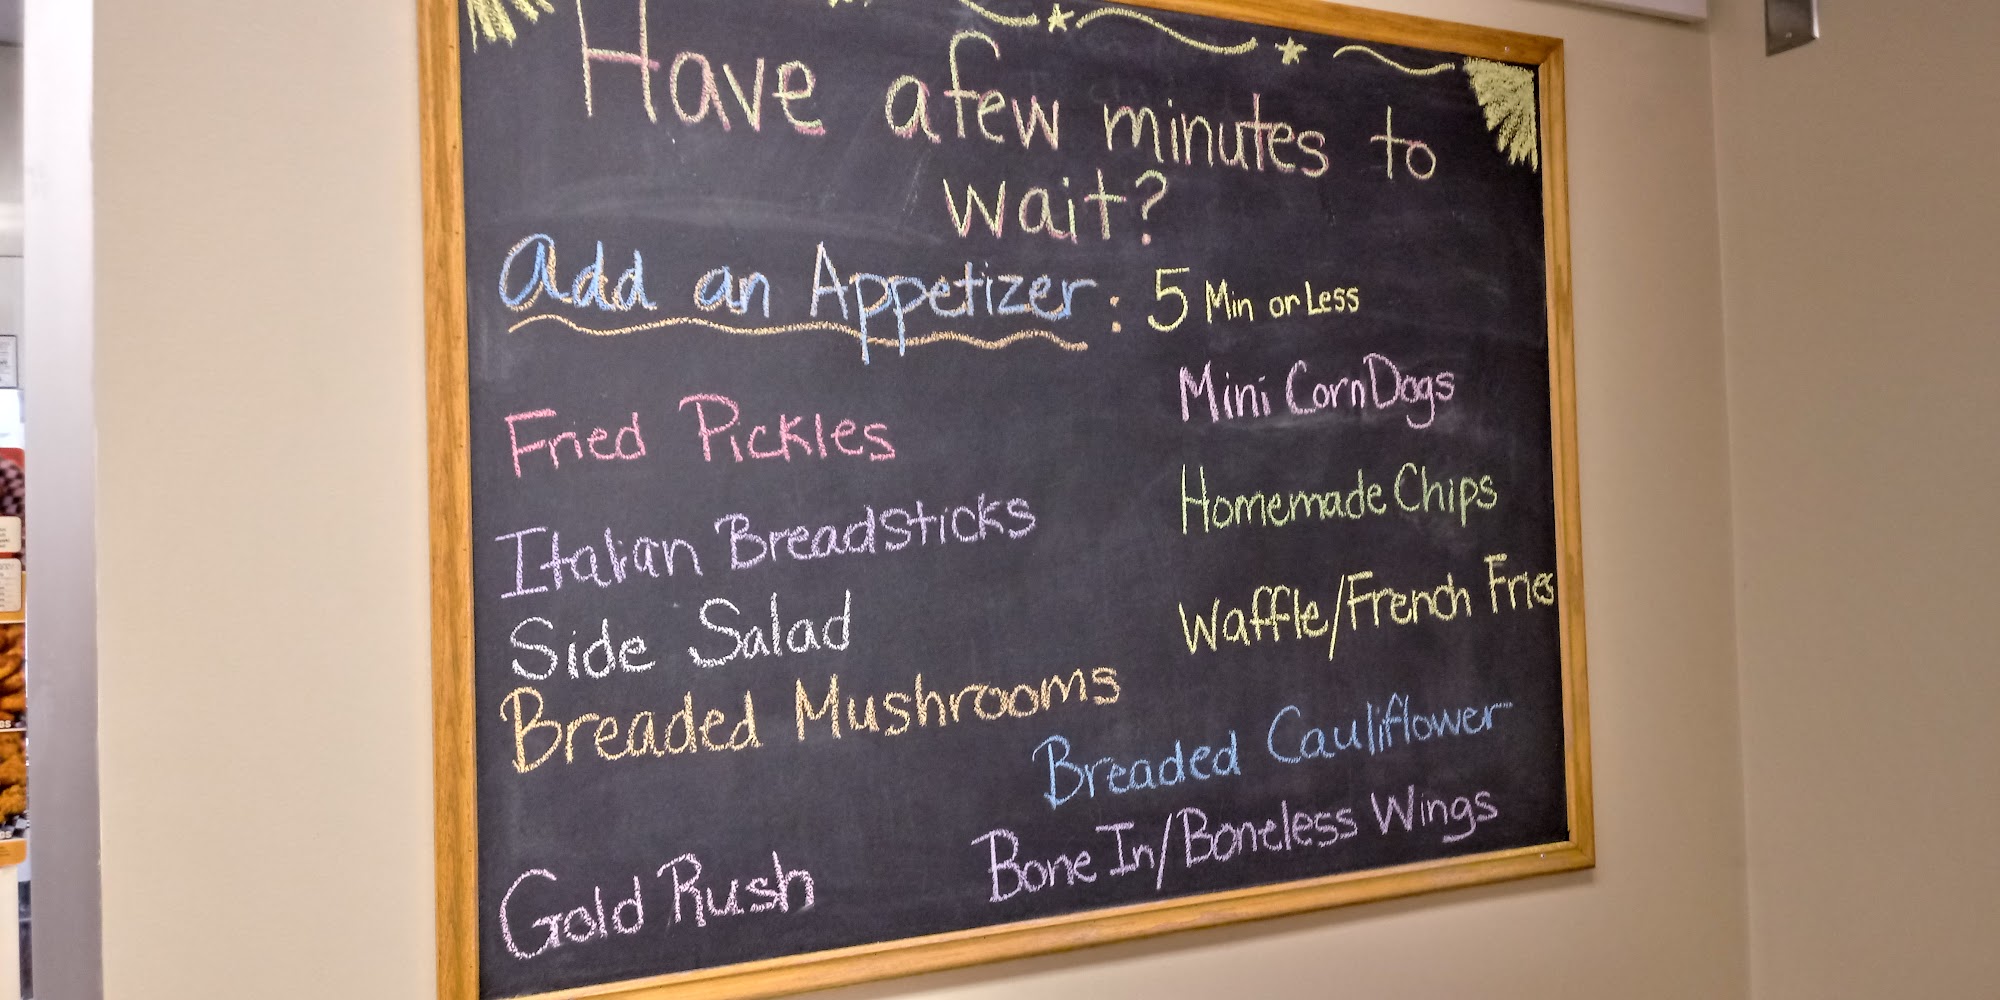 Have a few minutes to
wait?
Add an Appetizer: 5 Min or Less
Fried Pickles
Italian Breadsticks
Side Salad
Breaded Mushrooms
Gold Rush
Mini Corn Dogs
Homemade Chips
Waffle/French Fries
Breaded Cauliflower
Bone In/Boneless Wings